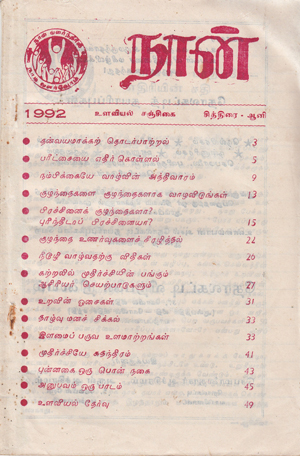 நான்
1992 உளவியல் சஞ்சிகை சித்திரை - ஆனி
தன்வயமாக்கற் தொடர்பாற்றல் 3
பரீட்சையை எதிர் கொள்ளல் 5
நம்பிக்கையே வாழ்வின் அத்திவாரம் 9
குழந்தைகளை குழந்தைகளாக வாழவிடுங்கள் 13
பிரச்சினைக் குழந்தைகளா?
புரிந்திடப் பிரச்சினையா? 15
குழந்தை உணர்வுகளைச் சீரழித்தல் 22
நீடூழி வாழ்வதற்கு விதிகள் 26
கற்றலில் முதிர்ச்சியின் பங்கும்
ஆசிரியர் செயற்பாடுகளும் 27
உறவின் ஓசைகள் 31
தாழ்வு மனச் சிக்கல் 33
இளமைப் பருவ உளமாற்றங்கள் 38
முதிர்ச்சியே சுதந்திரம் 41
புன்னகை ஒரு பொன் நகை 43
அனுபவம் ஒரு பாடம் 45
உளவியல் தேர்வு 49